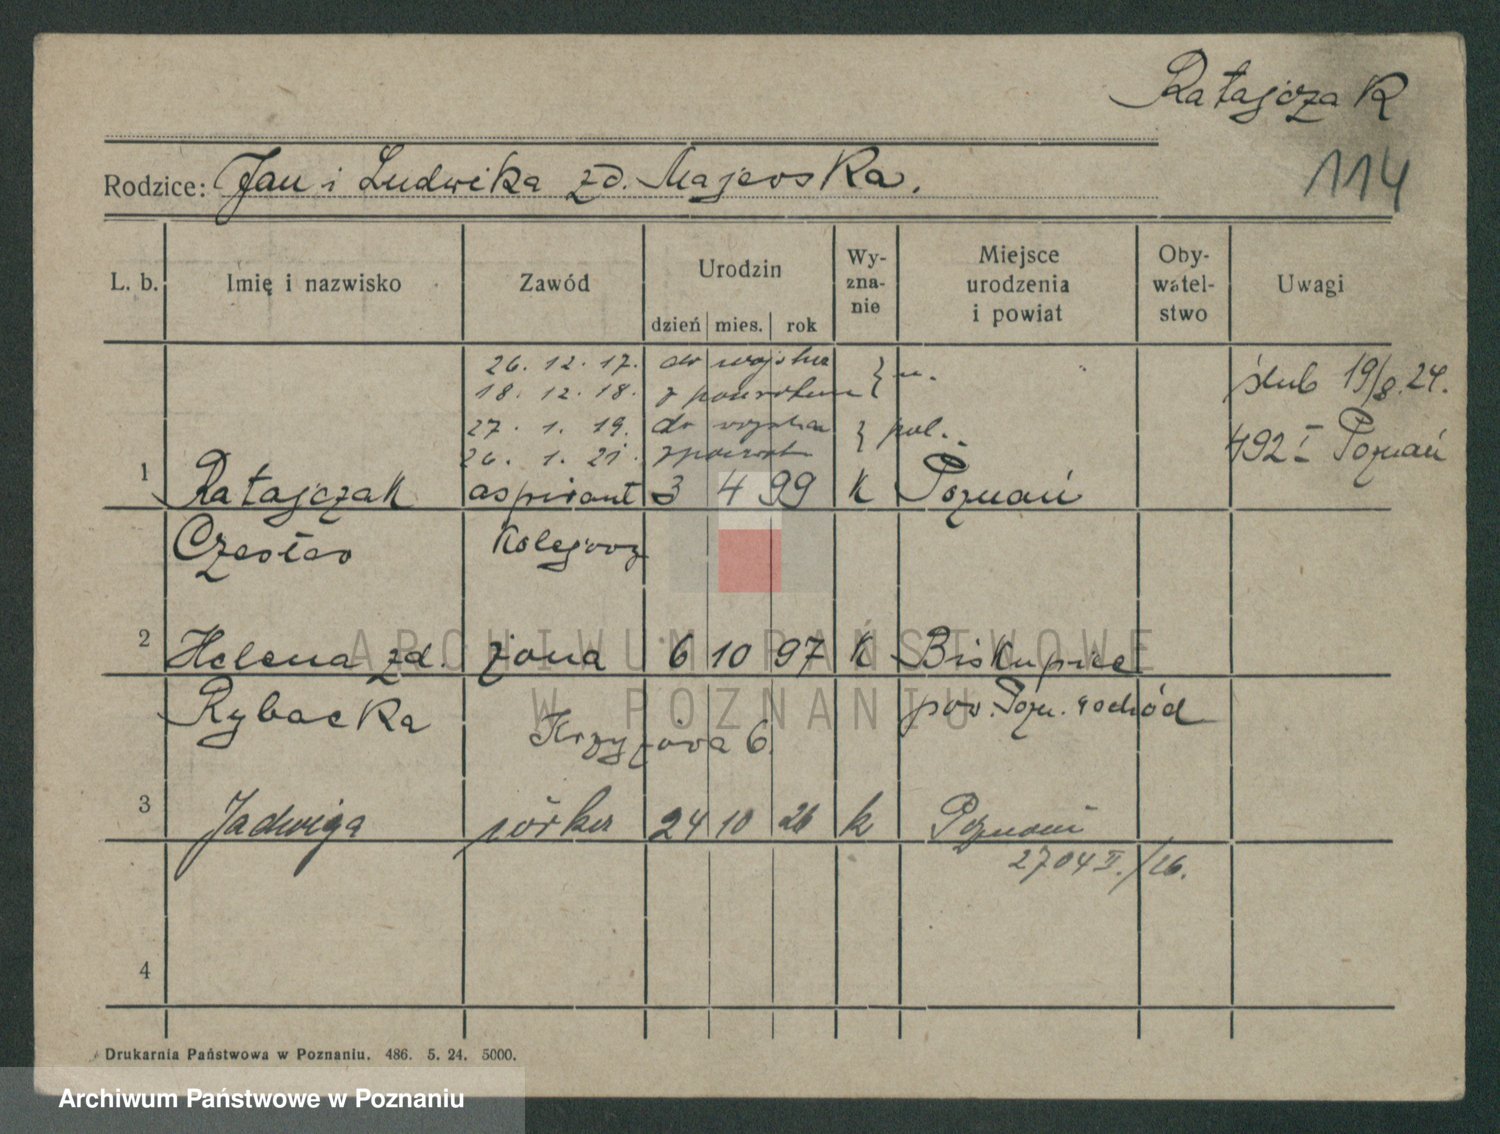 Ratajczak
114
Rodzice: Jan i Ludwika zd. Majewska.
L. b. Imię i nazwisko Zawód Urodzin Wy-zna-nie Miejsce urodzenia i powiat Oby-watel-stwo Uwagi
dzień mies. rok
26. 12. 17. do wojska } n.
18. 12. 18. z powrotem
27. 1. 19. do wojska } pol.
26. 1. 21. z powrotem
ślub 19/8.24.
492 I Poznań
1 Ratajczak aspirant 3 4 99 K Poznań
Czesław kolejowy
2 Helena zd. żona 6 10 97 K Biskupice
Rybacka pow. Pozn. zachód
Krzyżowa 6.
3 Jadwiga córka 24 10 26 k Poznań
2704 II./26.
4
Drukarnia Państwowa w Poznaniu. 486. 5. 24. 5000.
ARCHIWUM PAŃSTWOWE
W POZNANIU
Archiwum Państwowe w Poznaniu